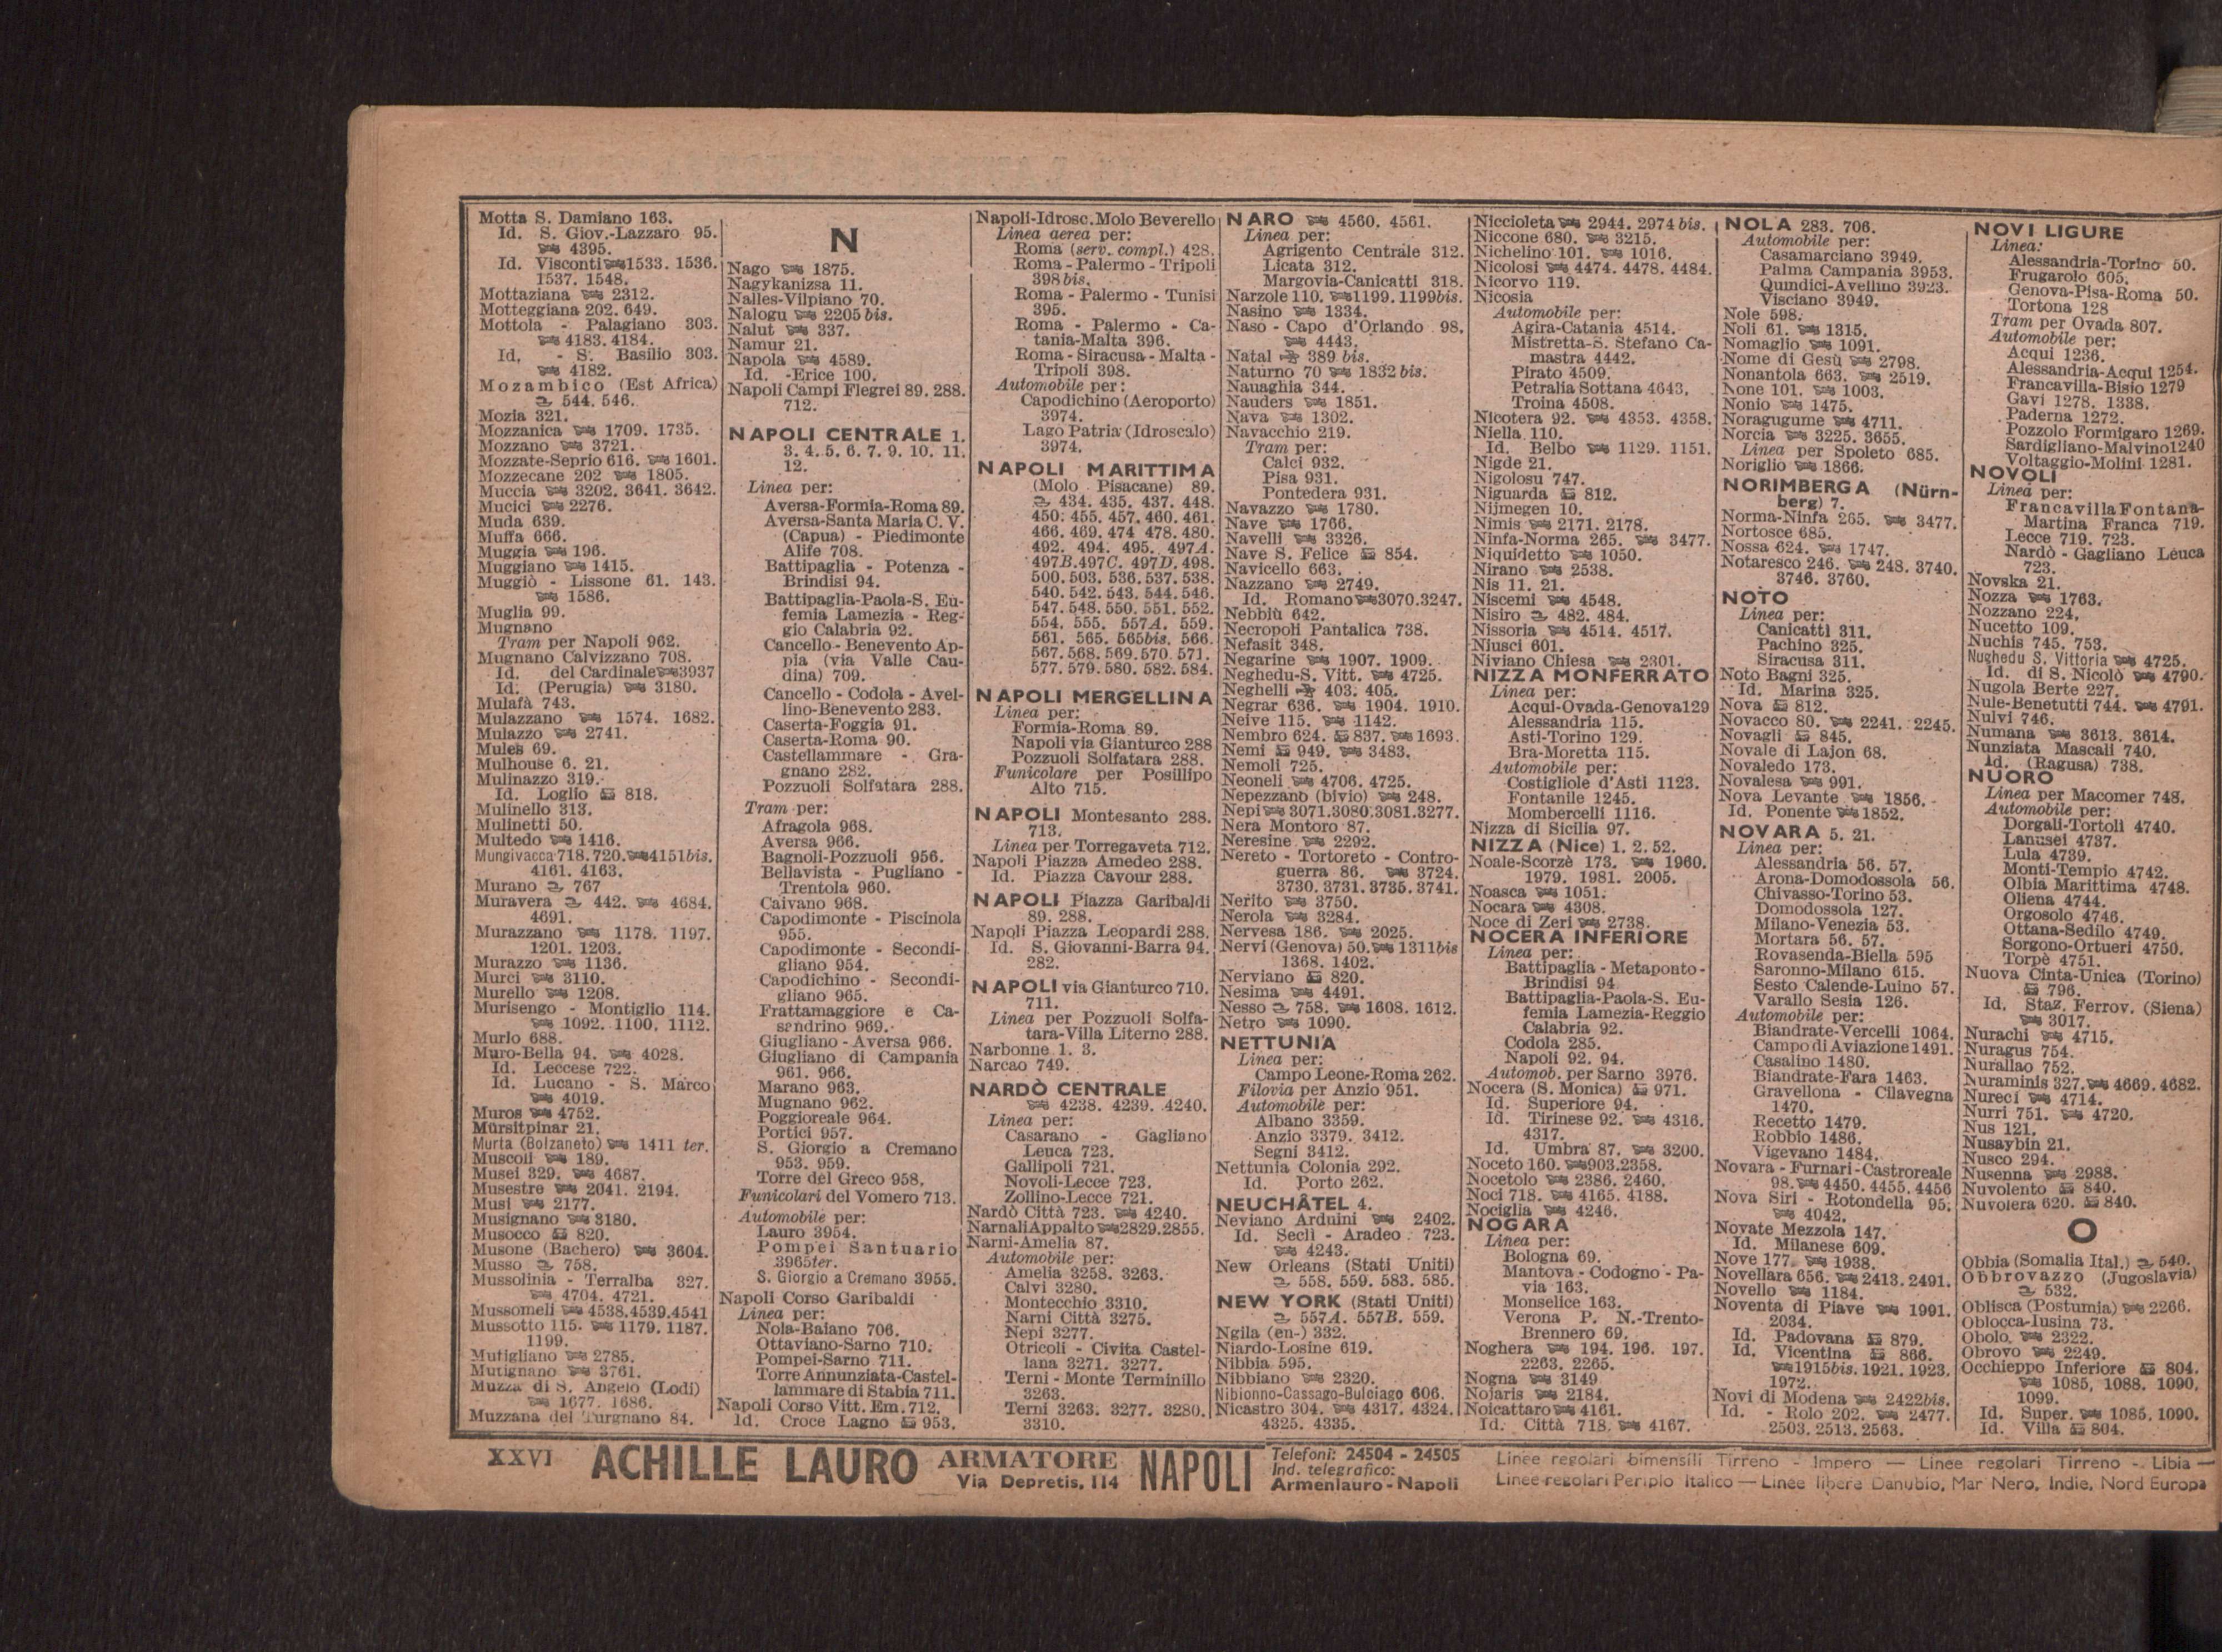 Motta S. Damiano 163.
Id. S. Giov.-Lazzaro 95.
4395.
Id. Visconti 1533. 1536.
1537. 1548.
Mottaziana 2312.
Motteggiana 202. 649.
Mottola - Palagiano 303.
4183. 4184.
Id. - S. Basilio 303.
4182.
Mozambico (Est Africa)
544. 546.
Mozia 321.
Mozzanica 1709. 1735.
Mozzano 3721.
Mozzate-Seprio 616. 1601.
Mozzecane 202 1805.
Muccia 3202. 3641. 3642.
Mucici 2276.
Muda 639.
Muffa 666.
Muggia 196.
Muggiano 1415.
Muggiò - Lissone 61. 143.
1586.
Muglia 99.
Mugnano
Tram per Napoli 962.
Mugnano Calvizzano 708.
Id. del Cardinale 3937
Id. (Perugia) 3180.
Mulafà 743.
Mulazzano 1574. 1682.
Mulazzo 2741.
Mules 69.
Mulhouse 6. 21.
Mulinazzo 319.
Id. Loglio 818.
Mulinello 313.
Mulinetti 50.
Multedo 1416.
Mungivacca 718. 720. 4151bis.
4161. 4163.
Murano 767
Muravera 442. 4684.
4691.
Murazzano 1178. 1197.
1201. 1203.
Murazzo 1136.
Murci 3110.
Murello 1208.
Murisengo - Montiglio 114.
1092. 1100. 1112.
Murlo 688.
Muro-Bella 94. 4028.
Id. Leccese 722.
Id. Lucano - S. Marco
4019.
Muros 4752.
Mürsitpinar 21.
Murta (Bolzaneto) 1411 ter.
Muscoli 189.
Musei 329. 4687.
Musestre 2041. 2194.
Musi 2177.
Musignano 3180.
Musocco 820.
Musone (Bachero) 3604.
Musso 758.
Mussolinia - Terralba 327.
4704. 4721.
Mussomeli 4538.4539.4541
Mussotto 115. 1179. 1187.
1199.
Mutigliano 2785.
Mutignano 3761.
Muzza di S. Angelo (Lodi)
1677. 1686.
Muzzana del Turgnano 84.
N
Nago 1875.
Nagykanizsa 11.
Nalles-Vilpiano 70.
Nalogu 2205 bis.
Nalut 337.
Namur 21.
Napola 4589.
Id. -Erice 100.
Napoli Campi Flegrei 89. 288.
712.
NAPOLI CENTRALE 1.
3. 4. 5. 6. 7. 9. 10. 11.
12.
Linea per:
Aversa-Formia-Roma 89.
Aversa-Santa Maria C. V.
(Capua) - Piedimonte
Alife 708.
Battipaglia - Potenza -
Brindisi 94.
Battipaglia-Paola-S. Eu-
femia Lamezia - Reg-
gio Calabria 92.
Cancello - Benevento Ap-
pia (via Valle Cau-
dina) 709.
Cancello - Codola - Avel-
lino-Benevento 283.
Caserta-Foggia 91.
Caserta-Roma 90.
Castellammare - Gra-
gnano 282.
Pozzuoli Solfatara 288.
Tram per:
Afragola 968.
Aversa 966.
Bagnoli-Pozzuoli 956.
Bellavista - Pugliano -
Trentola 960.
Caivano 968.
Capodimonte - Piscinola
955.
Capodimonte - Secondi-
gliano 954.
Capodichino - Secondi-
gliano 965.
Frattamaggiore e Ca-
sandrino 969.
Giugliano - Aversa 966.
Giugliano di Campania
961. 966.
Marano 963.
Mugnano 962.
Poggioreale 964.
Portici 957.
S. Giorgio a Cremano
953. 959.
Torre del Greco 958.
Funicolari del Vomero 713.
Automobile per:
Lauro 3954.
Pompei Santuario
3965ter.
S. Giorgio a Cremano 3955.
Napoli Corso Garibaldi
Linea per:
Nola-Baiano 706.
Ottaviano-Sarno 710.
Pompei-Sarno 711.
Torre Annunziata-Castel-
lammare di Stabia 711.
Napoli Corso Vitt. Em. 712.
Id. Croce Lagno 953.
Napoli-Idrosc. Molo Beverello
Linea aerea per:
Roma (serv. compl.) 428.
Roma - Palermo - Tripoli
398 bis.
Roma - Palermo - Tunisi
395.
Roma - Palermo - Ca-
tania-Malta 396.
Roma - Siracusa - Malta -
Tripoli 398.
Automobile per:
Capodichino (Aeroporto)
3974.
Lago Patria (Idroscalo)
3974.
NAPOLI MARITTIMA
(Molo Pisacane) 89.
434. 435. 437. 448.
450. 455. 457. 460. 461.
466. 469. 474 478. 480.
492. 494. 495. 497A.
497B.497C. 497D. 498.
500. 503. 536. 537. 538.
540. 542. 543. 544. 546.
547. 548. 550. 551. 552.
554. 555. 557A. 559.
561. 565. 565bis. 566.
567. 568. 569. 570. 571.
577. 579. 580. 582. 584.
NAPOLI MERGELLINA
Linea per:
Formia-Roma 89.
Napoli via Gianturco 288
Pozzuoli Solfatara 288.
Funicolare per Posillipo
Alto 715.
NAPOLI Montesanto 288.
713.
Linea per Torregaveta 712.
Napoli Piazza Amedeo 288.
Id. Piazza Cavour 288.
NAPOLI Piazza Garibaldi
89. 288.
Napoli Piazza Leopardi 288.
Id. S. Giovanni-Barra 94.
282.
NAPOLI via Gianturco 710.
711.
Linea per Pozzuoli Solfa-
tara-Villa Literno 288.
Narbonne 1. 3.
Narcao 749.
NARDÒ CENTRALE
4238. 4239. 4240.
Linea per:
Casarano - Gagliano
Leuca 723.
Gallipoli 721.
Novoli-Lecce 723.
Zollino-Lecce 721.
Nardò Città 723. 4240.
Narnali Appalto 2829.2855.
Narni-Amelia 87.
Automobile per:
Amelia 3258. 3263.
Calvi 3280.
Montecchio 3310.
Narni Città 3275.
Nepi 3277.
Otricoli - Civita Castel-
lana 3271. 3277.
Terni - Monte Terminillo
3263.
Terni 3263. 3277. 3280.
3310.
NARO 4560. 4561.
Linea per:
Agrigento Centrale 312.
Licata 312.
Margovia-Canicattì 318.
Narzole 110. 1199. 1199bis.
Nasino 1334.
Naso - Capo d'Orlando 98.
4443.
Natal 389 bis.
Naturno 70 1832 bis.
Nauaghia 344.
Nauders 1851.
Nava 1302.
Navacchio 219.
Tram per:
Calci 932.
Pisa 931.
Pontedera 931.
Navazzo 1780.
Nave 1766.
Navelli 3326.
Nave S. Felice 854.
Navicello 663.
Nazzano 2749.
Id. Romano 3070.3247.
Nebbiù 642.
Necropoli Pantalica 738.
Nefasit 348.
Negarine 1907. 1909.
Neghedu-S. Vitt. 4725.
Neghelli 403. 405.
Negrar 636. 1904. 1910.
Neive 115. 1142.
Nembro 624. 837. 1693.
Nemi 949. 3483.
Nemoli 725.
Neoneli 4706. 4725.
Nepezzano (bivio) 248.
Nepi 3071.3080.3081.3277.
Nera Montoro 87.
Neresine 2292.
Nereto - Tortoreto - Contro-
guerra 86. 3724.
3730. 3731. 3735. 3741.
Nerito 3750.
Nerola 3284.
Nervesa 186. 2025.
Nervi (Genova) 50. 1311bis
1368. 1402.
Nerviano 820.
Nesima 4491.
Nesso 758. 1608. 1612.
Netro 1090.
NETTUNIA
Linea per:
Campo Leone-Roma 262.
Filovia per Anzio 951.
Automobile per:
Albano 3359.
Anzio 3379. 3412.
Segni 3412.
Nettunia Colonia 292.
Id. Porto 262.
NEUCHÂTEL 4.
Neviano Arduini 2402.
Id. Seclì - Aradeo 723.
4243.
New Orleans (Stati Uniti)
558. 559. 583. 585.
NEW YORK (Stati Uniti)
557A. 557B. 559.
Ngila (en-) 332.
Niardo-Losine 619.
Nibbia 595.
Nibbiano 2320.
Nibionno-Cassago-Bulciago 606.
Nicastro 304. 4317. 4324.
4325. 4335.
Niccioleta 2944. 2974 bis.
Niccone 680. 3215.
Nichelino 101. 1016.
Nicolosi 4474. 4478. 4484.
Nicorvo 119.
Nicosia
Automobile per:
Agira-Catania 4514.
Mistretta-S. Stefano Ca-
mastra 4442.
Pirato 4509.
Petralia Sottana 4643.
Troina 4508.
Nicotera 92. 4353. 4358.
Niella 110.
Id. Belbo 1129. 1151.
Nigde 21.
Nigolosu 747.
Niguarda 812.
Nijmegen 10.
Nimis 2171. 2178.
Ninfa-Norma 265. 3477.
Niquidetto 1050.
Nirano 2538.
Nis 11. 21.
Niscemi 4548.
Nisiro 482. 484.
Nissoria 4514. 4517.
Niusci 601.
Niviano Chiesa 2301.
NIZZA MONFERRATO
Linea per:
Acqui-Ovada-Genova129
Alessandria 115.
Asti-Torino 129.
Bra-Moretta 115.
Automobile per:
Costigliole d'Asti 1123.
Fontanile 1245.
Mombercelli 1116.
Nizza di Sicilia 97.
NIZZA (Nice) 1. 2. 52.
Noale-Scorzè 173. 1960.
1979. 1981. 2005.
Noasca 1051.
Nocara 4308.
Noce di Zeri 2738.
NOCERA INFERIORE
Linea per:
Battipaglia - Metaponto -
Brindisi 94.
Battipaglia-Paola-S. Eu-
femia Lamezia-Reggio
Calabria 92.
Codola 285.
Napoli 92. 94.
Automob. per Sarno 3976.
Nocera (S. Monica) 971.
Id. Superiore 94.
Id. Tirinese 92. 4316.
4317.
Id. Umbra 87. 3200.
Noceto 160. 903.2358.
Nocetolo 2386. 2460.
Noci 718. 4165. 4188.
Nociglia 4246.
NOGARA
Linea per:
Bologna 69.
Mantova - Codogno - Pa-
via 163.
Monselice 163.
Verona P. N.-Trento-
Brennero 69.
Noghera 194. 196. 197.
2263. 2265.
Nogna 3149
Nojaris 2184.
Noicattaro 4161.
Id. Città 718. 4167.
NOLA 283. 706.
Automobile per:
Casamarciano 3949.
Palma Campania 3953.
Quindici-Avellino 3923.
Visciano 3949.
Nole 598.
Noli 61. 1315.
Nomaglio 1091.
Nome di Gesù 2798.
Nonantola 663. 2519.
None 101. 1003.
Nonio 1475.
Noragugume 4711.
Norcia 3225. 3655.
Linea per Spoleto 685.
Noriglio 1866.
NORIMBERGA (Nürn-
berg) 7.
Norma-Ninfa 265. 3477.
Nortosce 685.
Nossa 624. 1747.
Notaresco 246. 248. 3740.
3746. 3760.
NOTO
Linea per:
Canicattì 311.
Pachino 325.
Siracusa 311.
Noto Bagni 325.
Id. Marina 325.
Nova 812.
Novacco 80. 2241. 2245.
Novagli 845.
Novale di Lajon 68.
Novaledo 173.
Novalesa 991.
Nova Levante 1856.
Id. Ponente 1852.
NOVARA 5. 21.
Linea per:
Alessandria 56. 57.
Arona-Domodossola 56.
Chivasso-Torino 53.
Domodossola 127.
Milano-Venezia 53.
Mortara 56. 57.
Rovasenda-Biella 595
Saronno-Milano 615.
Sesto Calende-Luino 57.
Varallo Sesia 126.
Automobile per:
Biandrate-Vercelli 1064.
Campo di Aviazione 1491.
Casalino 1480.
Biandrate-Fara 1463.
Gravellona - Cilavegna
1470.
Recetto 1479.
Robbio 1486.
Vigevano 1484.
Novara - Furnari - Castroreale
98. 4450. 4455. 4456
Nova Siri - Rotondella 95.
4042.
Novate Mezzola 147.
Id. Milanese 609.
Nove 177. 1938.
Novellara 656. 2413. 2491.
Novello 1184.
Noventa di Piave 1991.
2034.
Id. Padovana 879.
Id. Vicentina 866.
1915bis. 1921. 1923.
1972.
Novi di Modena 2422bis.
Id. - Rolo 202. 2477.
2503. 2513. 2563.
NOVI LIGURE
Linea:
Alessandria-Torino 50.
Frugarolo 605.
Genova-Pisa-Roma 50.
Tortona 128
Tram per Ovada 807.
Automobile per:
Acqui 1236.
Alessandria-Acqui 1254.
Francavilla-Bisio 1279
Gavi 1278. 1338.
Paderna 1272.
Pozzolo Formigaro 1269.
Sardigliano-Malvino1240
Voltaggio-Molini 1281.
NOVOLI
Linea per:
Francavilla Fontana-
Martina Franca 719.
Lecce 719. 723.
Nardò - Gagliano Leuca
723.
Novska 21.
Nozza 1763.
Nozzano 224.
Nucetto 109.
Nuchis 745. 753.
Nughedu S. Vittoria 4725.
Id. di S. Nicolò 4790.
Nugola Berte 227.
Nule-Benetutti 744. 4791.
Nulvi 746.
Numana 3613. 3614.
Nunziata Mascali 740.
Id. (Ragusa) 738.
NUORO
Linea per Macomer 748.
Automobile per:
Dorgali-Tortolì 4740.
Lanusei 4737.
Lula 4739.
Monti-Tempio 4742.
Olbia Marittima 4748.
Oliena 4744.
Orgosolo 4746.
Ottana-Sedilo 4749.
Sorgono-Ortueri 4750.
Torpè 4751.
Nuova Cinta-Unica (Torino)
796.
Id. Staz. Ferrov. (Siena)
3017.
Nurachi 4715.
Nuragus 754.
Nurallao 752.
Nuraminis 327. 4669. 4682.
Nureci 4714.
Nurri 751. 4720.
Nus 121.
Nusaybin 21.
Nusco 294.
Nusenna 2988.
Nuvolento 840.
Nuvolera 620. 840.
O
Obbia (Somalia Ital.) 540.
Obbrovazzo (Jugoslavia)
532.
Oblisca (Postumia) 2266.
Oblocca-Iusina 73.
Obolo. 2322.
Obrovo 2249.
Occhieppo Inferiore 804.
1085. 1088. 1090.
1099.
Id. Super. 1085. 1090.
Id. Villa 804.
XXVI ACHILLE LAURO ARMATORE Via Depretis, 114 NAPOLI
Telefoni: 24504 - 24505
Ind. telegrafico:
Armenlauro - Napoli
Linee regolari bimensili Tirreno - Impero — Linee regolari Tirreno - Libia —
Linee regolari Periplo Italico — Linee libere Danubio, Mar Nero, Indie, Nord Europa